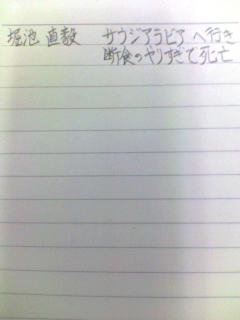 堀池 直毅 サウジアラビア へ行き
断食のやりすぎで死亡